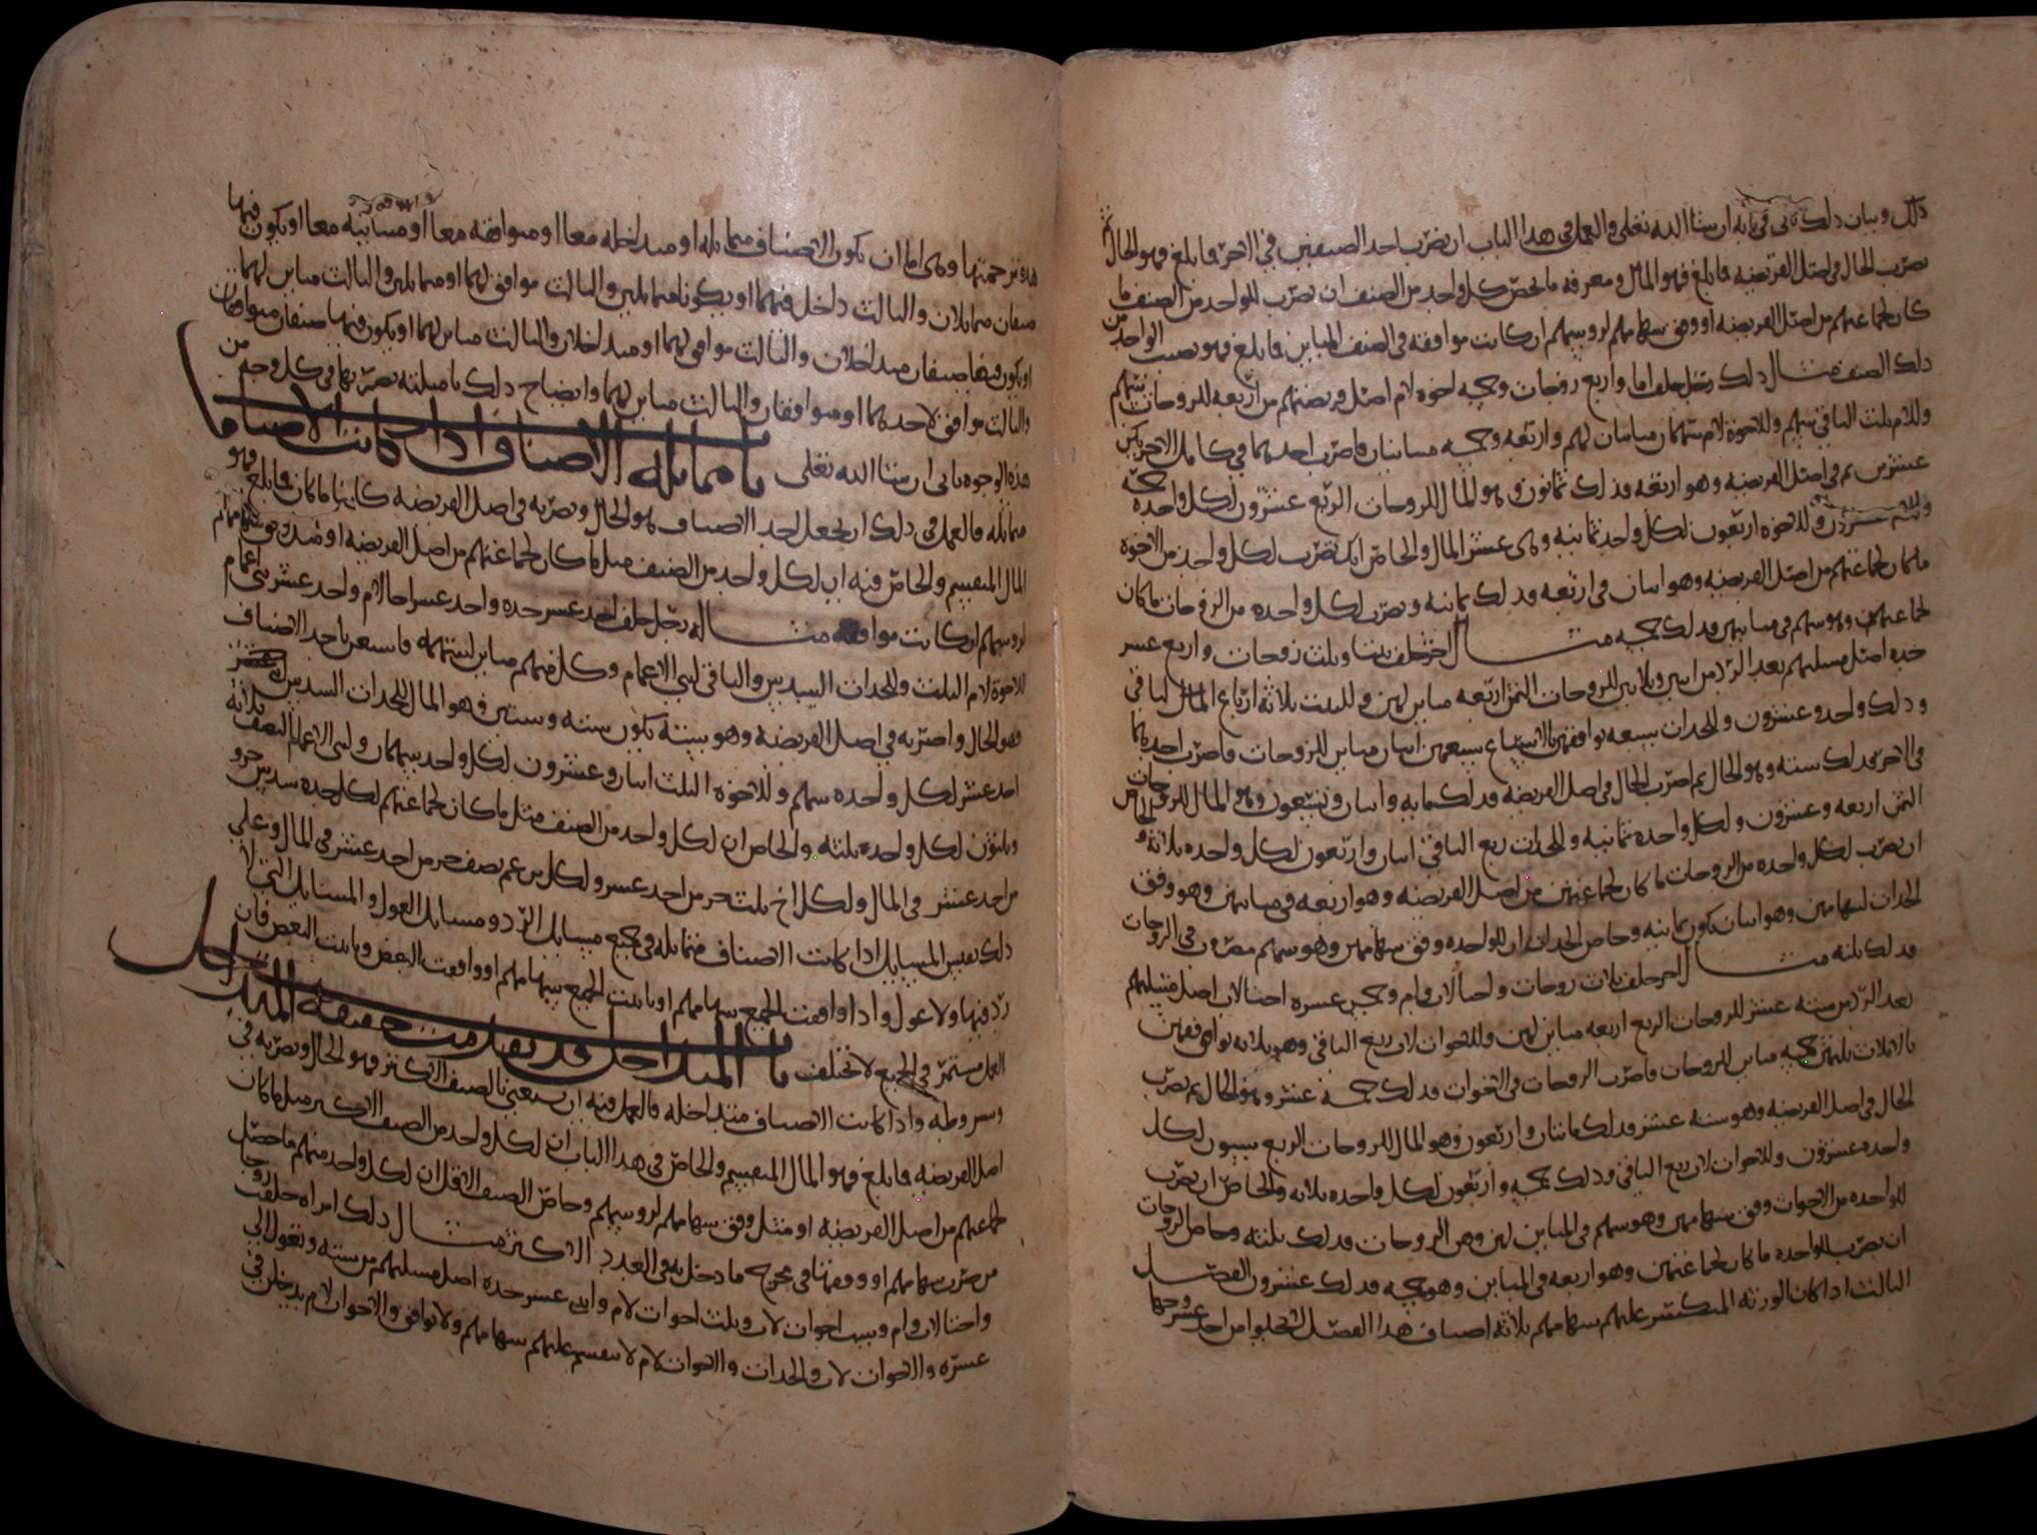 ذلك وبيان ذلك ياتي في بابه ان شا الله تعلى والعمل في هذا الباب ان يضرب احد الصنفين في الاخر فما بلغ فهو الحال
يضرب الحال في اصل الفريضه فما بلغ فهو المال ومعرفه ما يخص كل واحد من الصنف ان يضرب للواحد من الصنف ما
كان لجماعتهم من اصل الفريضه او وفق سهامهم لروسهم ان كانت موافقه في الصنف المباين فما بلغ فهو نصيب الواحد من
ذلك الصنف مثال ذلك رجل خلف اما واربع زوجات وخمسه اخوه لام اصل فريضتهم من اربعه للزوجات سهم
وللام ثلث الباقي سهم وللاخوة لام سهمان مباينان لهم واربعه وخمسه متباينان فاضرب احدهما في كامل الاخر يكن
عشرين ثم في اصل الفريضه وهو اربعه فذلك ثمانون وهو المال للزوجات الربع عشرون لكل واحده خمسه
وللام عشرون وللاخوه اربعون لكل واحد ثمانيه وهي عشر المال والخاص انك تضرب لكل واحد من الاخوة
ما كان لجماعتهم من اصل الفريضه وهو اثنان في اربعه فذلك ثمانيه وتضرب لكل واحده من الزوجات ما كان
لجماعتهن وهو سهم في مباينهن فذلك خمسه مثال اخر خلف بنتا وثلث زوجات واربع عشر
جده اصل مسلتهم بعد الرد من اثنين وثلاثين للزوجات الثمن اربعه مباين لهن وللبنت ثلاثه ارباع المال الباقي
وذلك واحد وعشرون وللجدات سبعه توافقهن بالاسباع سبعهن اثنان مباين للزوجات فاضرب احدهما
في الاخر فذلك سته وهو الحال ثم اضرب الحال في اصل الفريضه فذلك مايه واثنان وتسعون وهو المال للزوجات
الثمن اربعه وعشرون ولكل واحده ثمانيه وللجدات ربع الباقي اثنان واربعون لكل واحده ثلاثه والخاص
ان يضرب لكل واحده من الزوجات ما كان لجماعتهن من اصل الفريضه وهو اربعه في مباينهن وهو وفق
الجدات لسهامهن وهو اثنان يكون ثمانيه وخاص الجدات ان للواحده وفق سهامهن وهو سهم مضروب في الزوجات
فذلك ثلثه مثال اخر خلف ثلاث زوجات واختا لاب وام وخمس عشره اختا لاب اصل مسلتهم
بعد الرد من سته عشر للزوجات الربع اربعه مباين لهن وللاخوات لاب ربع الباقي وهو ثلاثه توافقهن
بالاثلاث ثلثهن خمسه مباين للزوجات فاضرب الزوجات في الاخوات فذلك خمسة عشر وهو الحال ثم يضرب
الحال في اصل الفريضه وهو سته عشر فذلك مائتان واربعون وهو المال للزوجات الربع ستون لكل
واحده عشرون وللاخوات لاب ربع الباقي وذلك خمسه واربعون لكل واحده ثلاثه والخاص ان يضرب
للواحده من الاخوات وفق سهامهن وهو سهم في المباين لهن وهن الزوجات فذلك ثلثه وخاص الزوجات
ان يضرب للواحده ما كان لجماعتهن وهو اربعه في المباين وهو خمسه فذلك عشرون الفصل
الثالث اذا كان الورثه المنكسر عليهم سهامهم ثلاثه اصناف هذا الفصل لا يخلوا من احد عشر وجها
هذه ترجمتها وهي اما ان يكون الاصناف متماثله او متداخله معا او متوافقه معا او متباينه معا او يكون فيها
صنفان متماثلان والثالث داخل فيهما او يكونا متماثلين والثالث موافق لهما او متماثلين والثالث مباين لهما
او يكون فيها صنفان متداخلان والثالث موافق لهما او متداخلان والثالث مباين لهما او يكون فيها صنفان متوافقان
والثالث موافق لاحدهما او متوافقان والثالث مباين لهما وايضاح ذلك بامثلته نضربها في كل وجه من
هذه الوجوه ياتي ان شا الله تعلى باب مماثله الاصناف اذا كانت الاصناف
متماثله فالعمل في ذلك ان يجعل احد الاصناف هو الحال ويضربه في اصل الفريضه كاينا ما كان فما بلغ فهو
المال المنقسم والخاص فيه ان لكل واحد من الصنف مثل ما كان لجماعتهم من اصل الفريضه او مثل وفق سهامهم
لروسهم ان كانت موافقه مثاله رجل خلف احد عشر جده واحد عشر اخا لام واحد عشر بني اعمام
للاخوة لام الثلث وللجدات السدس والباقي لبني الاعمام وكل منهم مباين لسهمه فاستعن باحد الاصناف
فهو الحال واضربه في اصل الفريضة وهو سته يكون سته وستين فهو المال للجدات السدس
احد عشر لكل واحده سهم وللاخوه الثلث اثنان وعشرون لكل واحد سهمان ولبني الاعمام النصف ثلاثه
وثلثون لكل واحد ثلثه والخاص ان لكل واحد من الصنف مثل ما كان لجماعتهم لكل جده سدس جزو
من احد عشر في المال ولكل اخ ثلث جز من احد عشر ولكل بن عم نصف جز من احد عشر في المال وعلى
ذلك تقيس المسايل اذا كانت الاصناف متماثله في جميع مسايل الرد ومسايل العول والمسايل التي لا
رد فيها ولا عول واذا وافقت الجميع سهامهم او باينت الجميع سهامهم او وافقت البعض وباينت البعض فان
العمل مستمر في الجميع لا يختلف باب المتداخل قد تقدمت حقيقة المتداخل
وشروطه واذا كانت الاصناف متداخله فالعمل فيه ان تستغني بالصنف الاكثر فهو الحال ويضربه في
اصل الفريضه فما بلغ فهو المال المنقسم والخاص في هذا الباب ان لكل واحد من الصنف الاكثر مثل ما كان
لجماعتهم من اصل الفريضه او مثل وفق سهامهم لروسهم وخاص الصنف الاقل ان لكل واحد منهم ما حصل
من ضرب سهامهم او وفقها في مخرج ما دخل به في العدد الاكثر مثال ذلك امراه خلفت زوجا
واختا لاب وام وست اخوات لاب وثلث اخوات لام واثني عشر جده اصل مسلتهم من سته وتعول الى
عشره والاخوات لاب والجدات والاخوات لام لا ينقسم عليهم سهامهم ولا توافق والاخوات لام يدخلن في